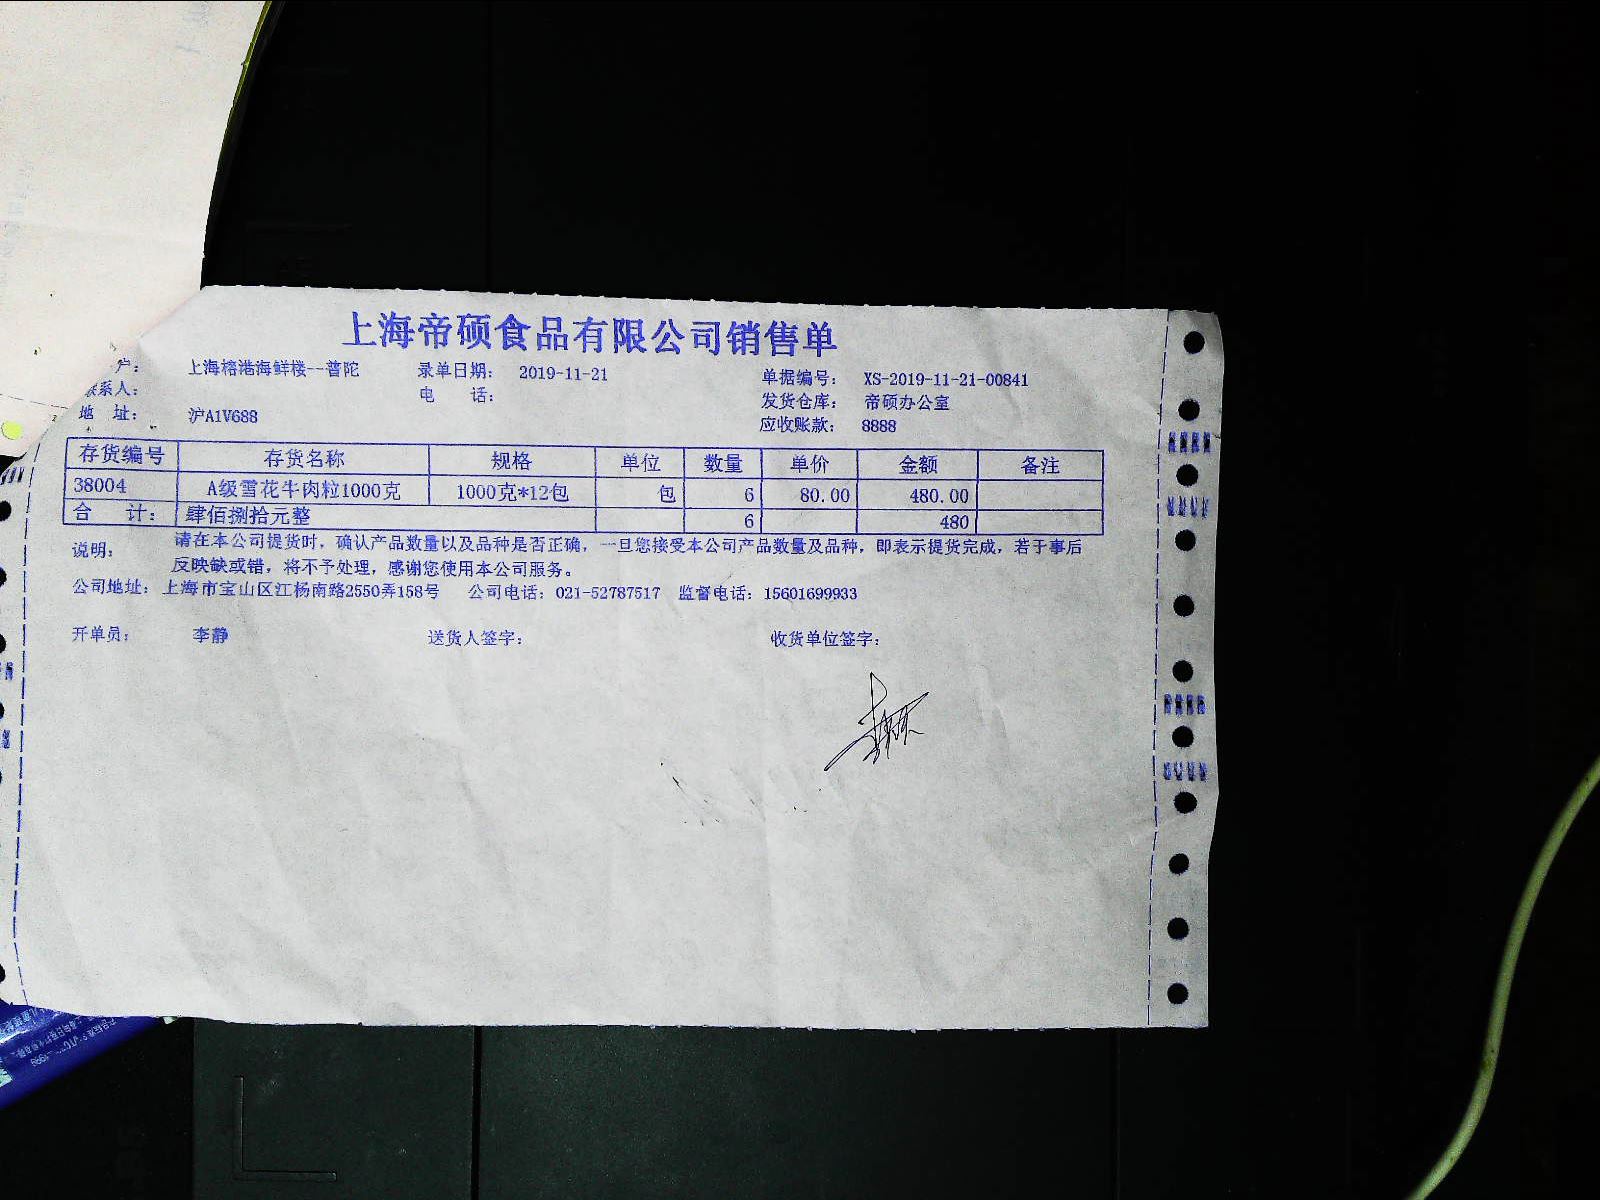 上海帝硕食品有限公司销售单
户： 上海榕港海鲜楼--普陀 录单日期： 2019-11-21 单据编号： XS-2019-11-21-00841
联系人： 电 话： 发货仓库： 帝硕办公室
地 址： 沪A1V688 应收账款： 8888
存货编号 存货名称 规格 单位 数量 单价 金额 备注
38004 A级雪花牛肉粒1000克 1000克*12包 包 6 80.00 480.00
合 计： 肆佰捌拾元整 6 480
说明： 请在本公司提货时，确认产品数量以及品种是否正确，一旦您接受本公司产品数量及品种，即表示提货完成，若于事后
反映缺或错，将不予处理，感谢您使用本公司服务。
公司地址： 上海市宝山区江杨南路2550弄158号 公司电话：021-52787517 监督电话：15601699933
开单员： 李静 送货人签字： 收货单位签字：